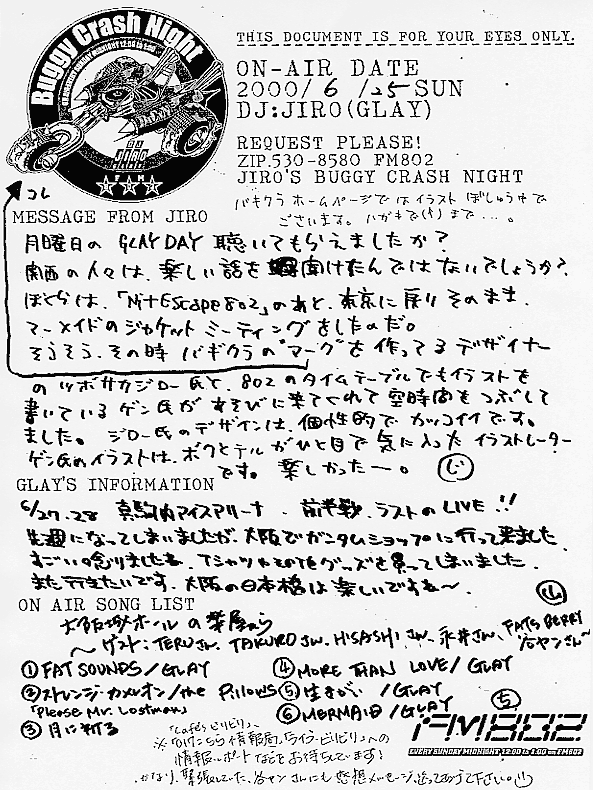 Buggy Crash Night
THIS DOCUMENT IS FOR YOUR EYES ONLY.
ON-AIR DATE
2000/6/25 SUN
DJ:JIRO(GLAY)
REQUEST PLEASE!
ZIP.530-8580 FM802
JIRO'S BUGGY CRASH NIGHT
コレ
バギクラ ホームページでは イラスト ぼしゅう中で
ございます。ハガキで まで…。
MESSAGE FROM JIRO
月曜日の GLAY DAY 聴いてもらえましたか?
関西の人々は、楽しい話を 聞けたんではないでしょうか?
ぼくらは、「NiTEscape802」のあと、東京に戻り そのまま、
マーメイドのジャケット ミーティングをしたのだ。
そうそう、その時 バギクラの"マーク"を 作ってる デザイナー
の ツボサカジロー氏と、802のタイムテーブルでもイラストを
書いている ゲン氏が あそびに来てくれて 空時間を つぶして
ました。 ジロー氏のデザインは、個性的で カッコイイです。
ゲン氏のイラストは、ボクとテルがひと目で 気に入った イラストレーター
です。 楽しかったー。 (じ)
GLAY'S INFORMATION
6/27.28 真駒内アイスアリーナ - 前半戦、ラストの LIVE !!
先週になってしまいましたが、大阪でガンダムショップに行って来ました
すごい 。Tシャツやその他グッズを 買ってしまいました。
また行きたいです。大阪の日本橋は楽しいですね〜。
ON AIR SONG LIST
大阪城ホールの楽屋から
〜ゲスト:TERUさん、TAKUROさん、HISASHIさん、永井さん、FATS BERRY
谷ヤンさん〜
①FAT SOUNDS/GLAY
②ストレンジ カメレオン/the Pillows
「Please Mr. Lostman」
③月に祈る
④MORE THAN LOVE/GLAY
⑤生きがい /GLAY
⑥MERMAID/GLAY
FM802
EVERY SUNDAY MIDNIGHT 12:00 to 1:00 on FM802
「Cafeビリビリ」、
※「 こちら情報局」「ライブ・ビリビリ」への
情報、レポートなどをお待ちしています!
かなり、緊張していた、谷ヤンさんにも 感想メッセージ、送ってあげて下さい。